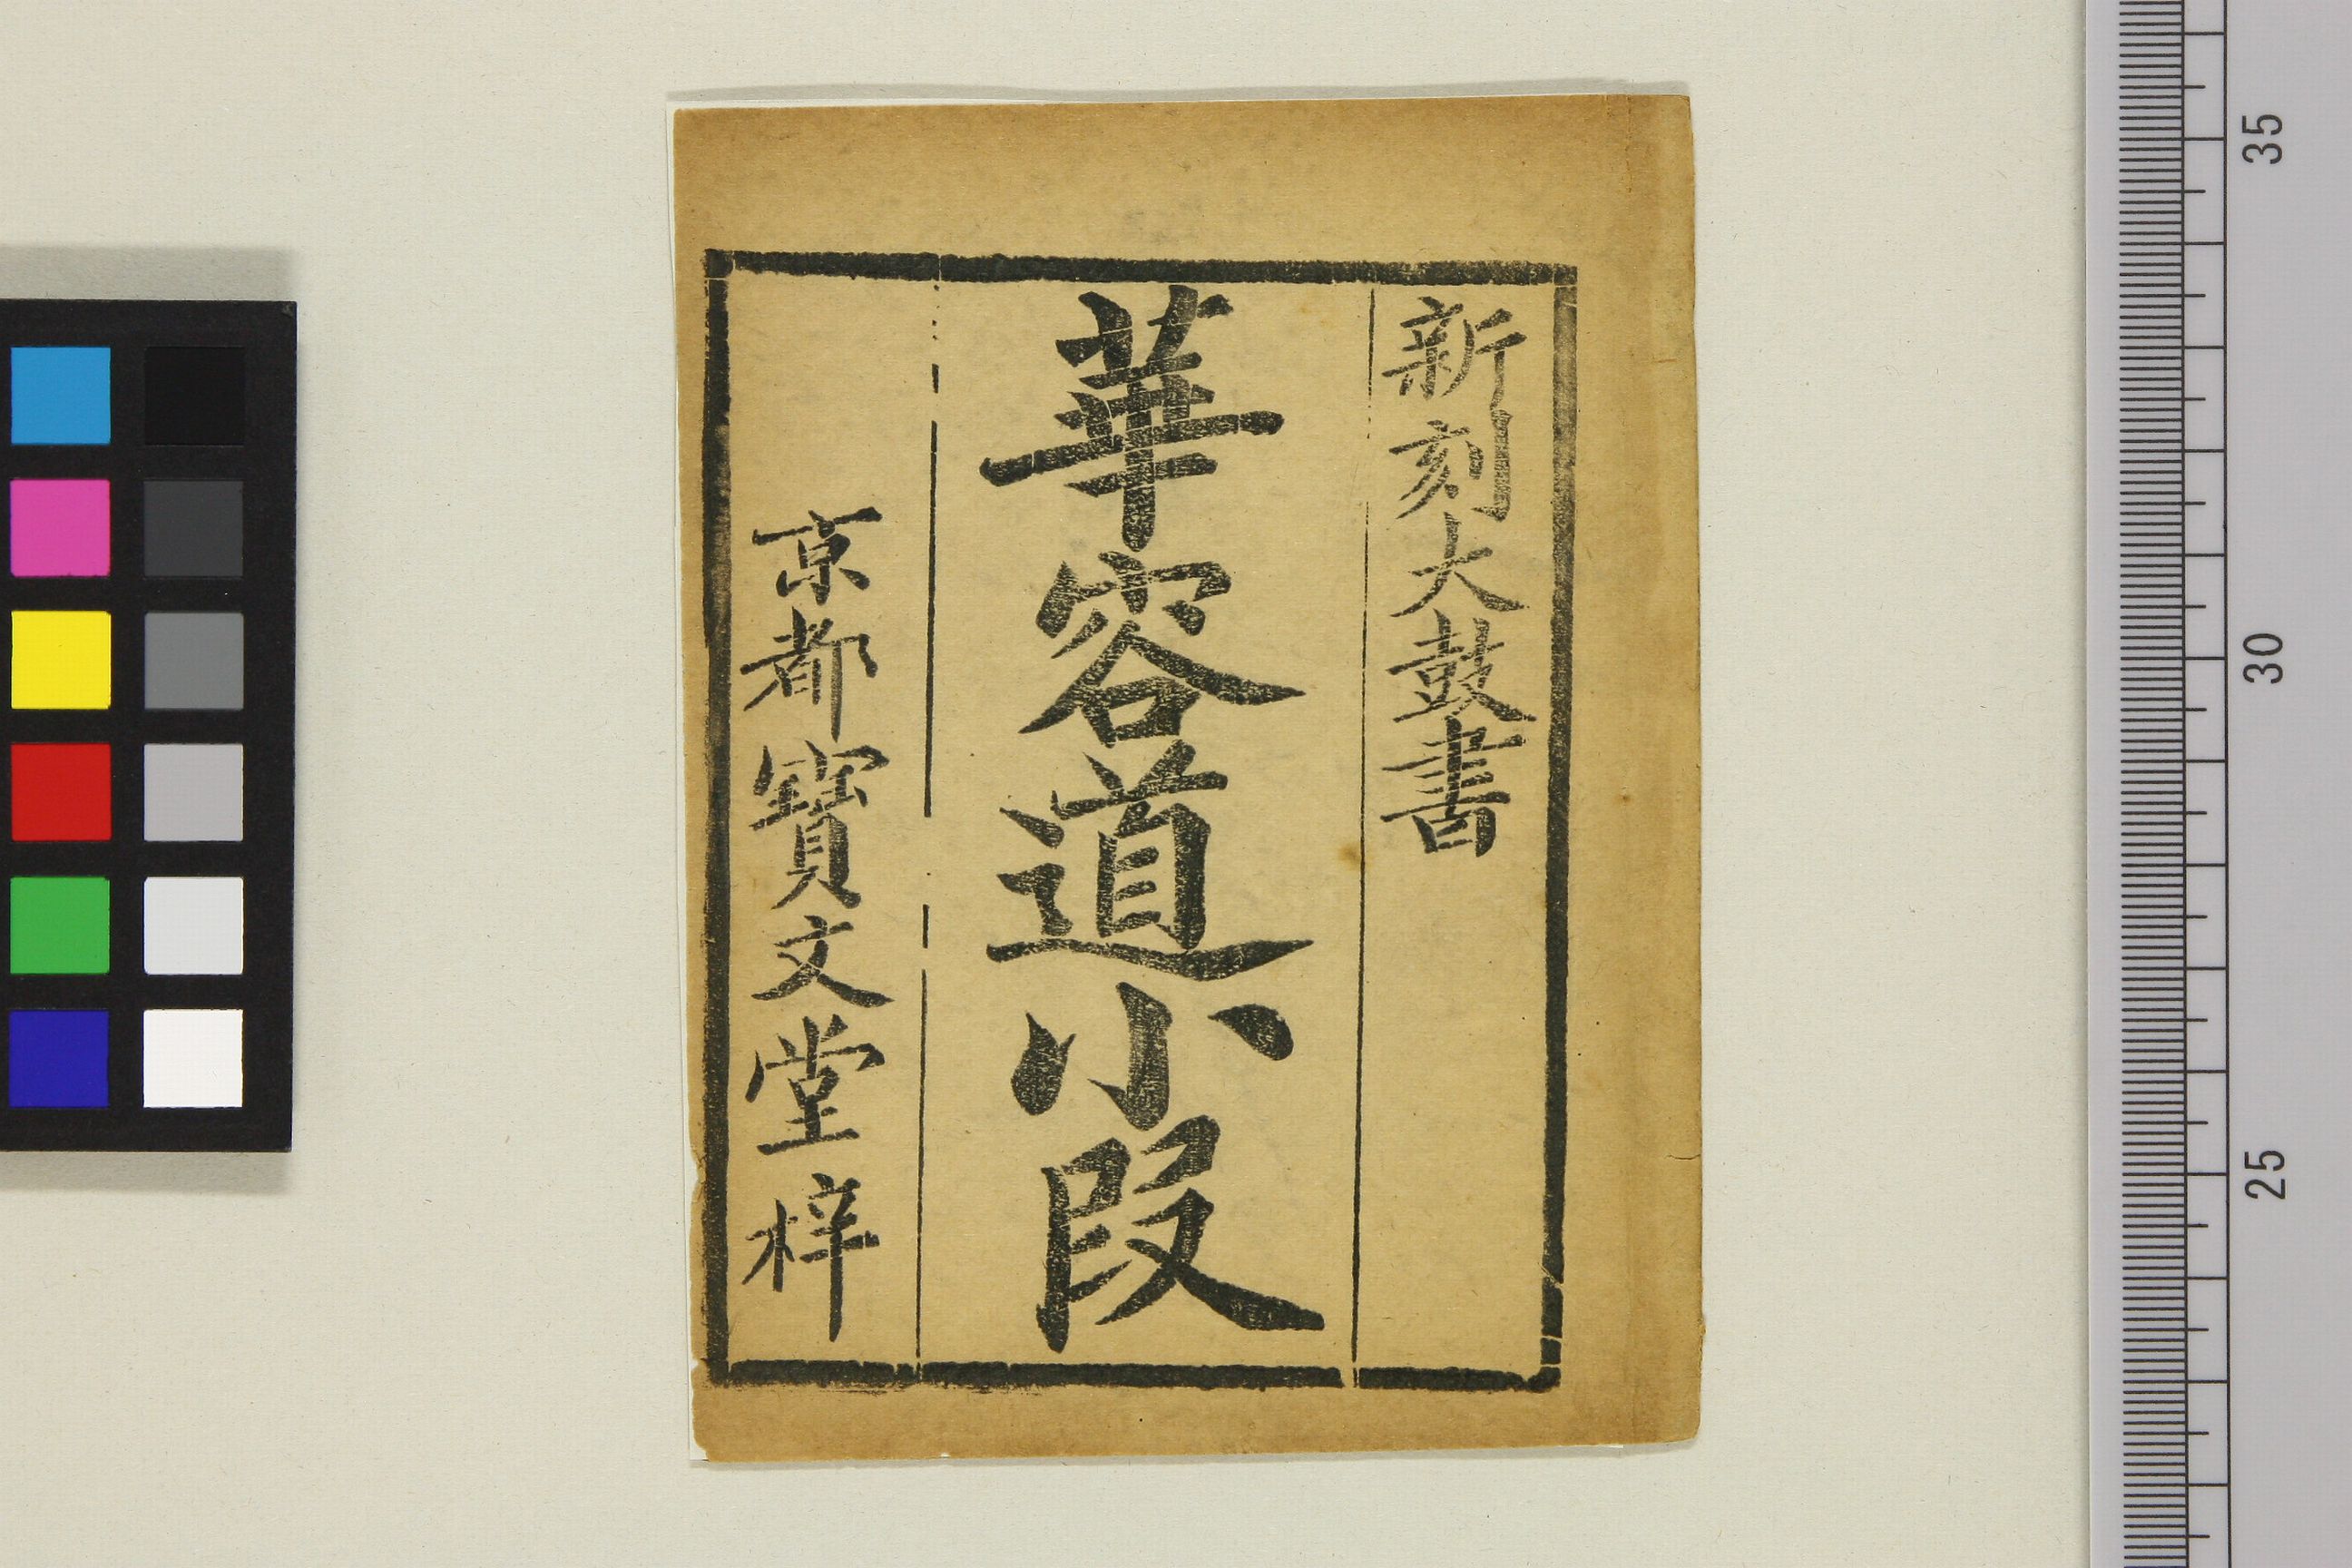 新刻大鼓書
華容道小叚
京都寶文堂梓
35
30
25